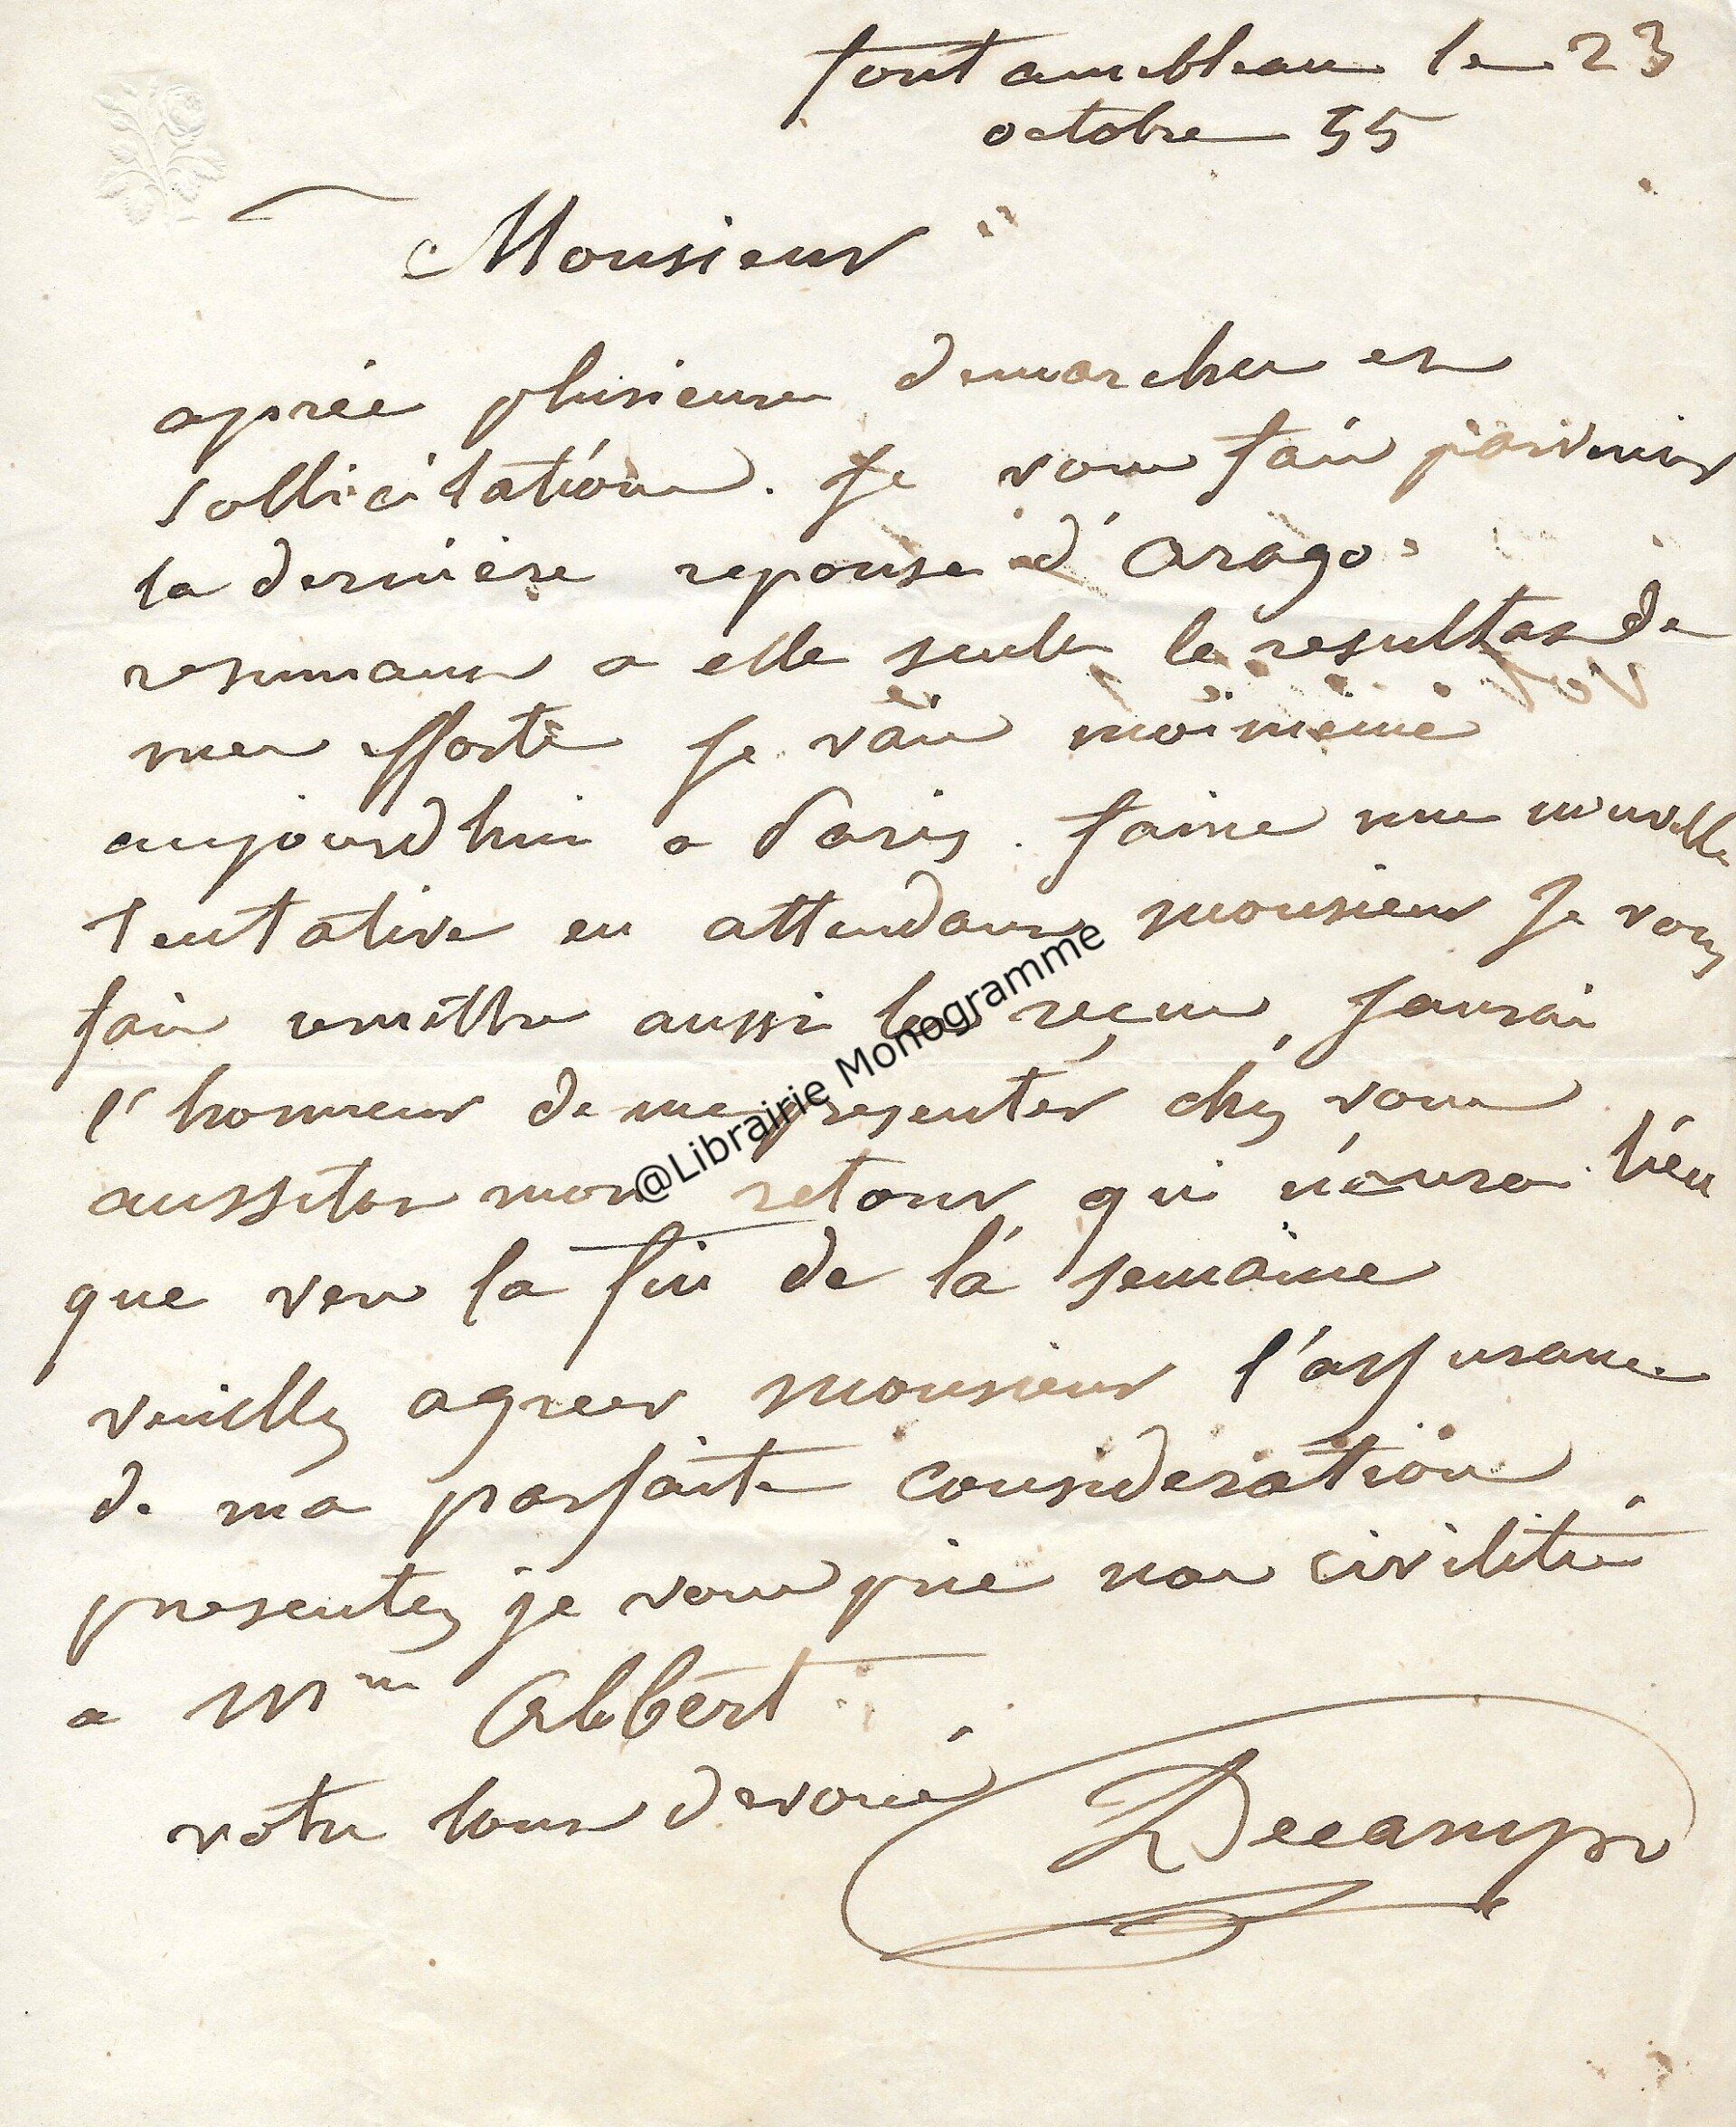 fontainebleau le 23
octobre 55
Monsieur
après plusieurs demarches et
sollicitations. Je vous fais parvenir
la dernière reponse d'Arago
resumant a elle seule le resultat de
mes efforts je vais moi même
aujourdhui a Paris. faire une nouvelle
tentative en attendant monsieur Je vous
fais remettre aussi les reçus, Jaurai
l'honneur de me presenter chez vous
aussitot mon retour qui n'aura lieu
que vers la fin de la semaine
veuillez agreer monsieur l'assurance
de ma parfaite consideration
presentez je vous prie nos civilités
a Mme Albert
votre tout devoué Decamps
@Librairie Monogramme